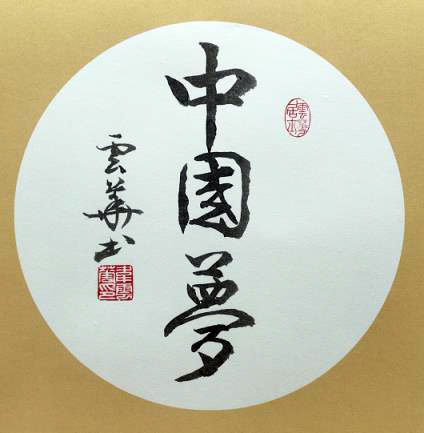 中國夢
雲華书